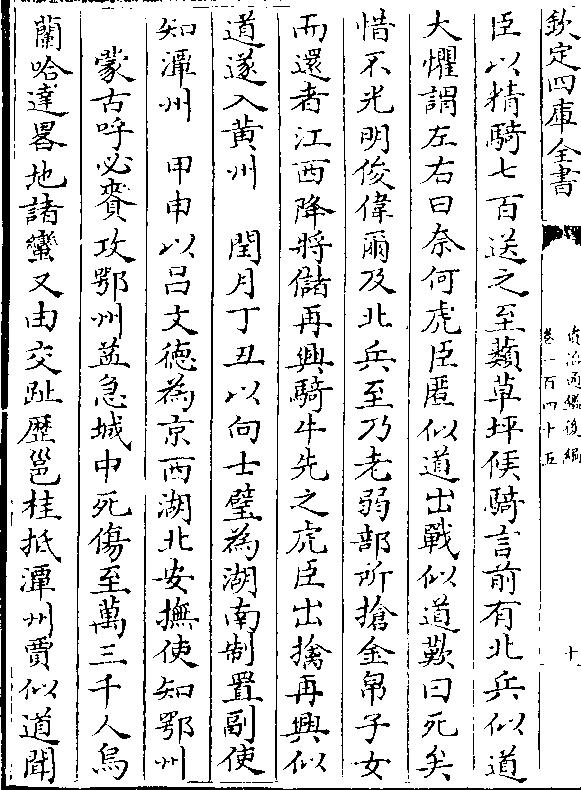 欽定四庫全書
資治通鑑後編
卷一百四十五
十
臣以精騎七百送之至蘋草坪候騎言前有北兵似道
大懼謂左右曰奈何虎臣匿似道出戰似道歎曰死矣
惜不光明俊偉爾及北兵至乃老弱部所搶金帛子女
而還者江西降將儲再興騎牛先之虎臣出擒再興似
道遂入黄州　閏月丁丑以向士璧為湖南制置副使
知潭州　甲申以吕文德為京西湖北安撫使知鄂州
蒙古呼必賚攻鄂州益急城中死傷至萬三千人烏
蘭哈達畧地諸蠻又由交趾歴邕桂抵潭州賈似道聞